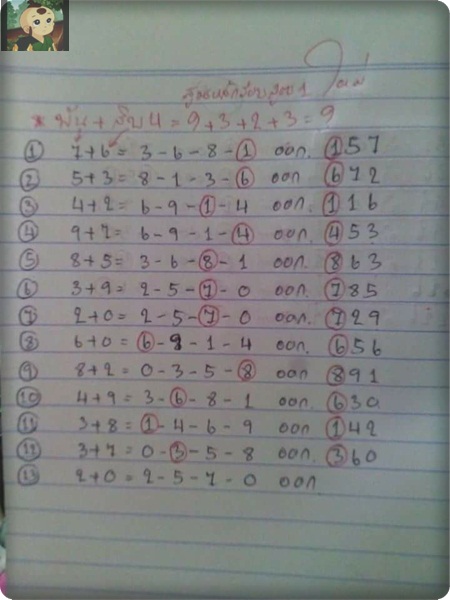 ใหม่
* พัน + สิบบน = 9+3+2+3 = 9
① 7+6 = 3-6-8-1 ออก. 157
② 5+3 = 8-1-3-6 ออก 672
③ 4+2 = 6-9-1-4 ออก. 116
④ 9+7 = 6-9-1-4 ออก. 453
⑤ 8+5 = 3-6-8-1 ออก. 863
⑥ 3+9 = 2-5-7-0 ออก. 785
⑦ 2+0 = 2-5-7-0 ออก. 729
⑧ 6+0 = 6-9-1-4 ออก. 656
⑨ 8+2 = 0-3-5-8 ออก 891
⑩ 4+9 = 3-6-8-1 ออก. 630
⑪ 3+8 = 1-4-6-9 ออก. 142
⑫ 3+7 = 0-3-5-8 ออก. 360
⑬ 2+0 = 2-5-7-0 ออก